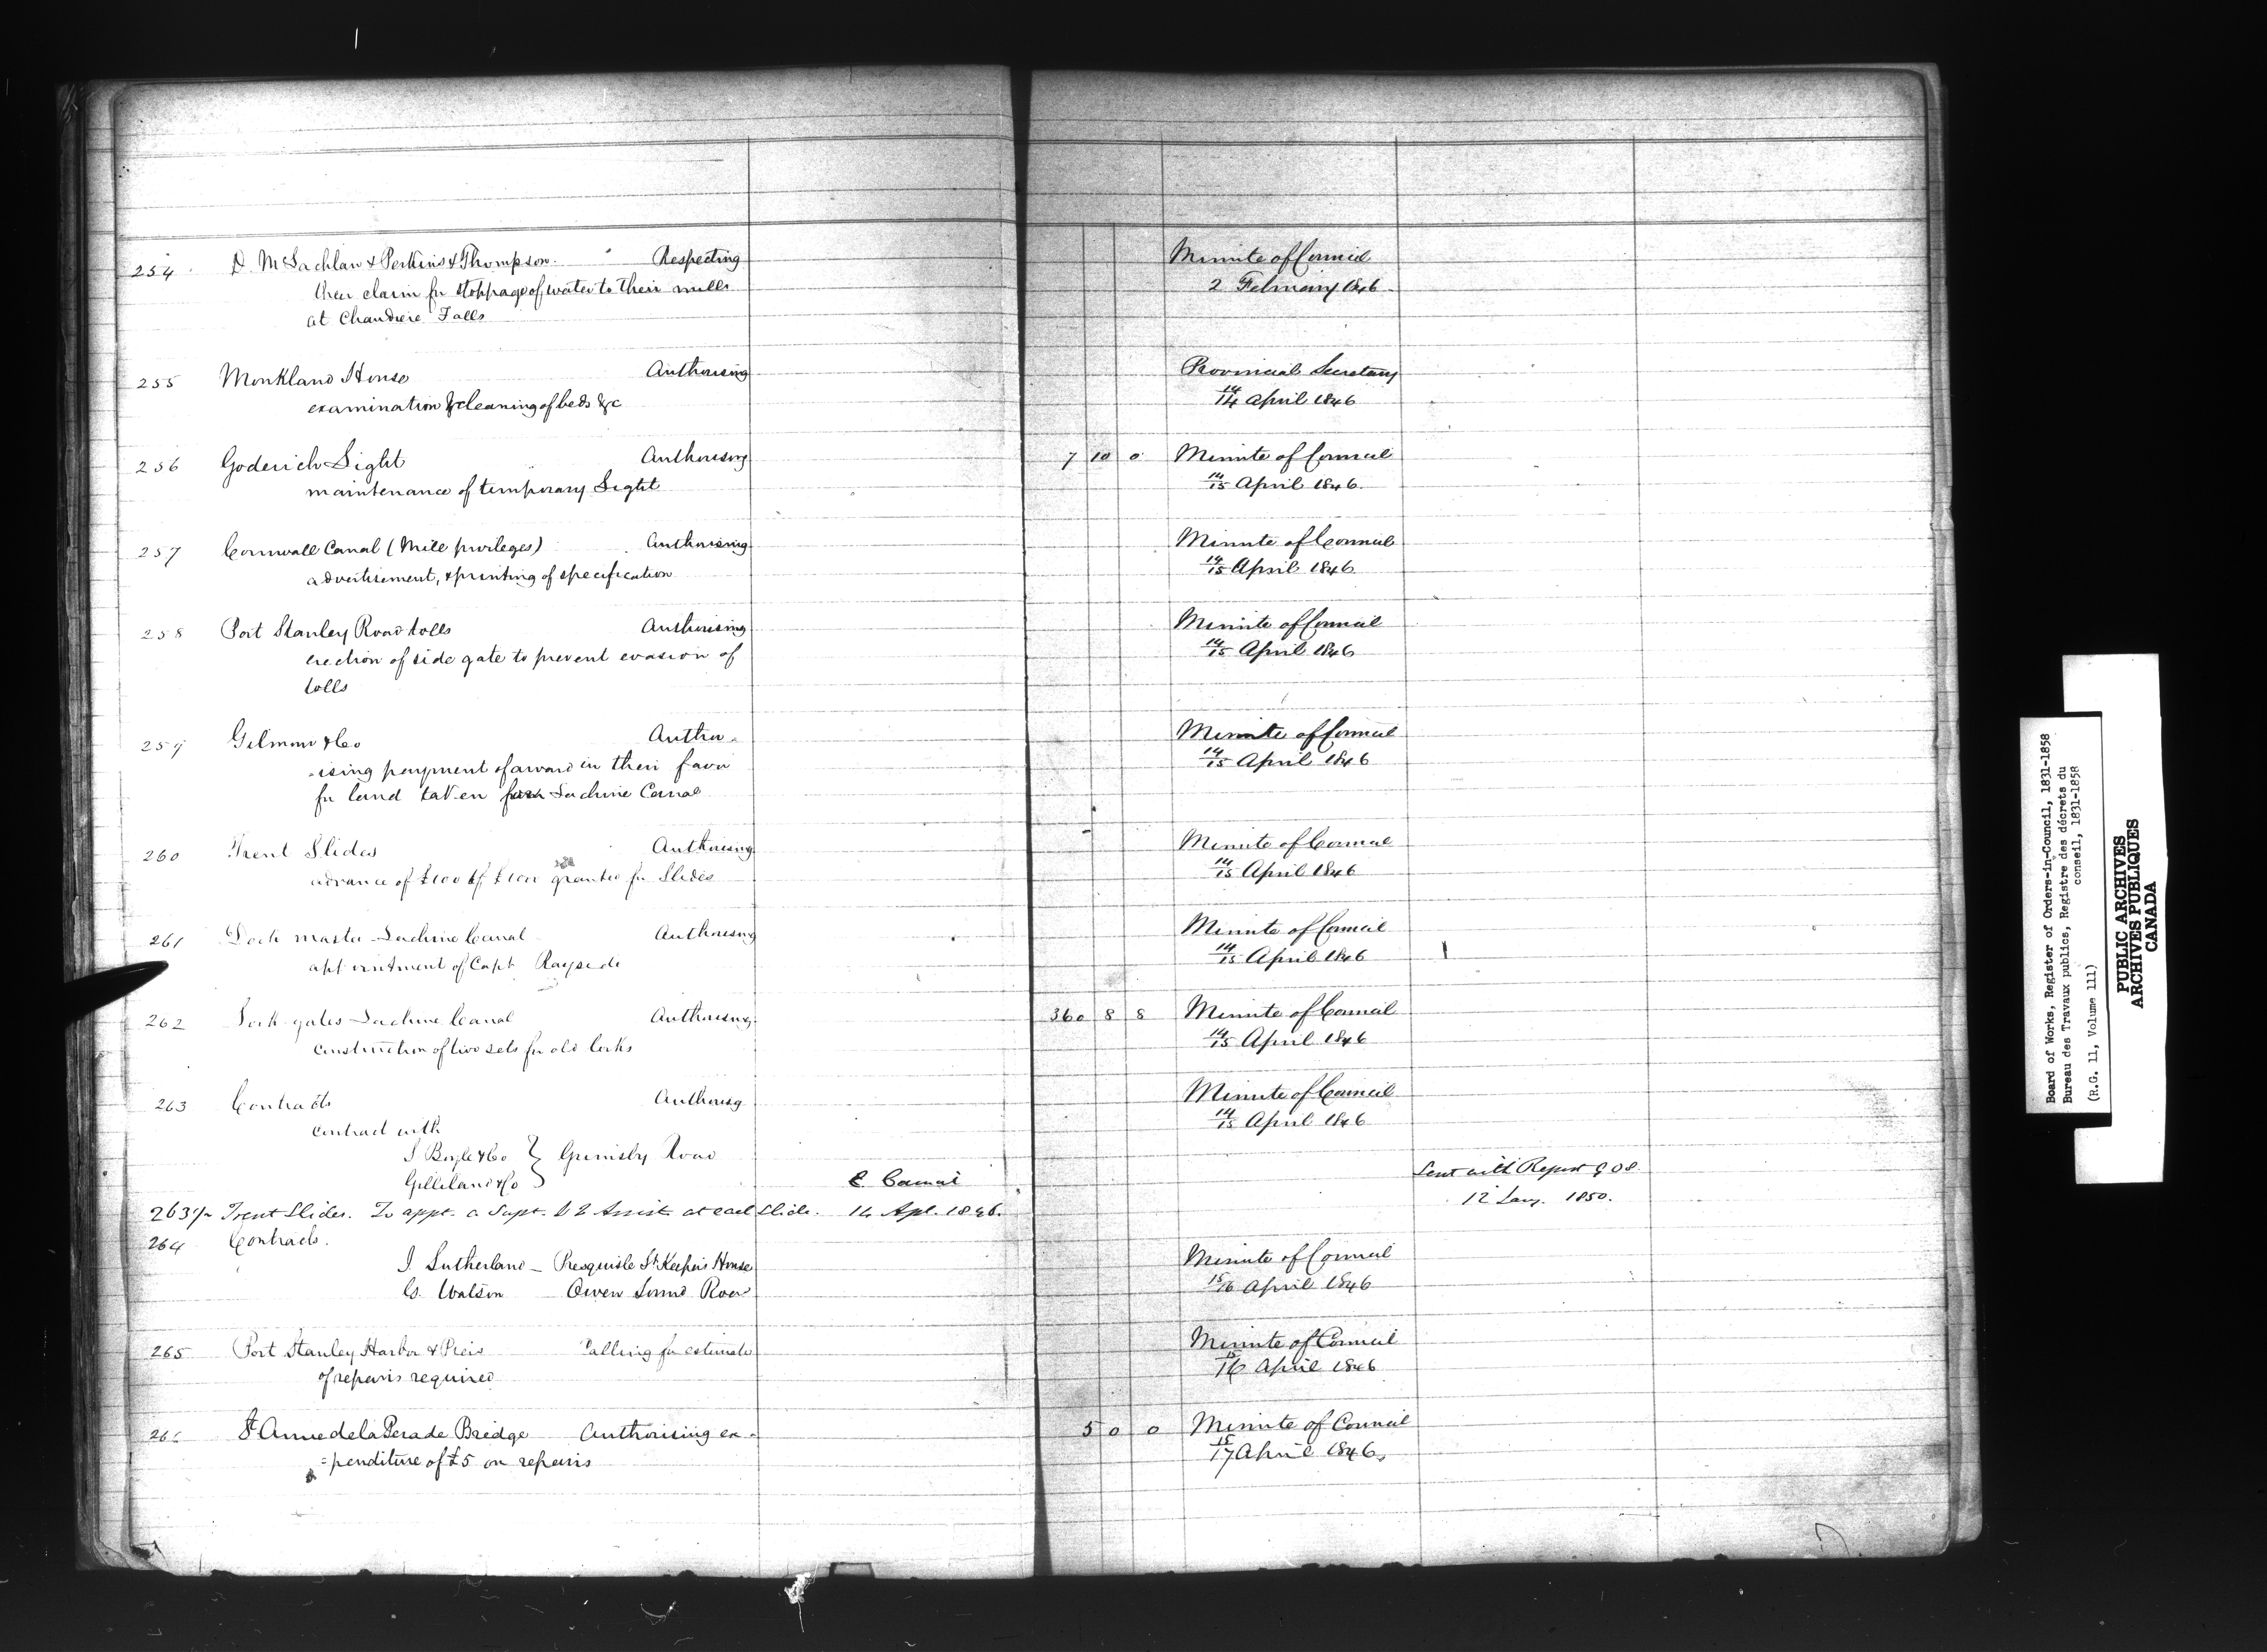 254 D. McLachlan & Perkins & Thompson. Respecting Minute of Council
their claim for stoppage of water to their mills 2 February 1846
at Chaudiere Falls
255 Monkland House Authorising Provincial Secretary
examination & cleaning of beds &c 14/14 April 1846
256 Goderich Light Authorising 7 10 0 Minute of Council
maintenance of temporary Light 14/15 April 1846.
257 Cornwall Canal (Mill privileges) Authorising Minute of Council
advertisement, & printing of specification 14/15 April 1846
258 Port Stanley Road tolls Authorising Minute of Council
erection of side gate to prevent evasion of 14/15 April 1846
tolls
259 Gilmour & Co Autho- Minute of Council
-ising payment of award in their favor 14/15 April 1846
for land taken for Lachine Canal
260 Trent Slides Authorising Minute of Council
advance of £100 of £1000 granted for Slides 14/15 April 1846
261 Lock master Lachine Canal Authorising Minute of Council
appointment of Capt Rayside 14/15 April 1846
262 Lock gates Lachine Canal Authorising 360 8 8 Minute of Council
construction of two sets for old locks 14/15 April 1846
263 Contracts Authorisg Minute of Council
contract with 14/15 April 1846
J Boyle & Co } Grimsby Road
Gilliland & Co
E. Council Sent with Report 908
263½ Trent Slides. To appt. a Supt. & 2 Assist. at each Slide. 14 Apl. 1846. 12 Jany. 1850.
264 Contracts.
J Sutherland - Presquisle Lt Keeper's House Minute of Council
G. Watson Owen Sound Road 15/16 April 1846
265 Port Stanley Harbor & Piers Calling for estimate Minute of Council
of repairs required 15/16 April 1846
266 St Anne de la Perade Bridge Authorising ex- 5 0 0 Minute of Council
=penditure of £5 on repairs 15/17 April 1846
Board of Works, Register of Orders-in-Council, 1831-1858
Bureau des Travaux publics, Registre des décrets du
conseil, 1831-1858
(R.G. 11, Volume 111)
PUBLIC ARCHIVES
ARCHIVES PUBLIQUES
CANADA